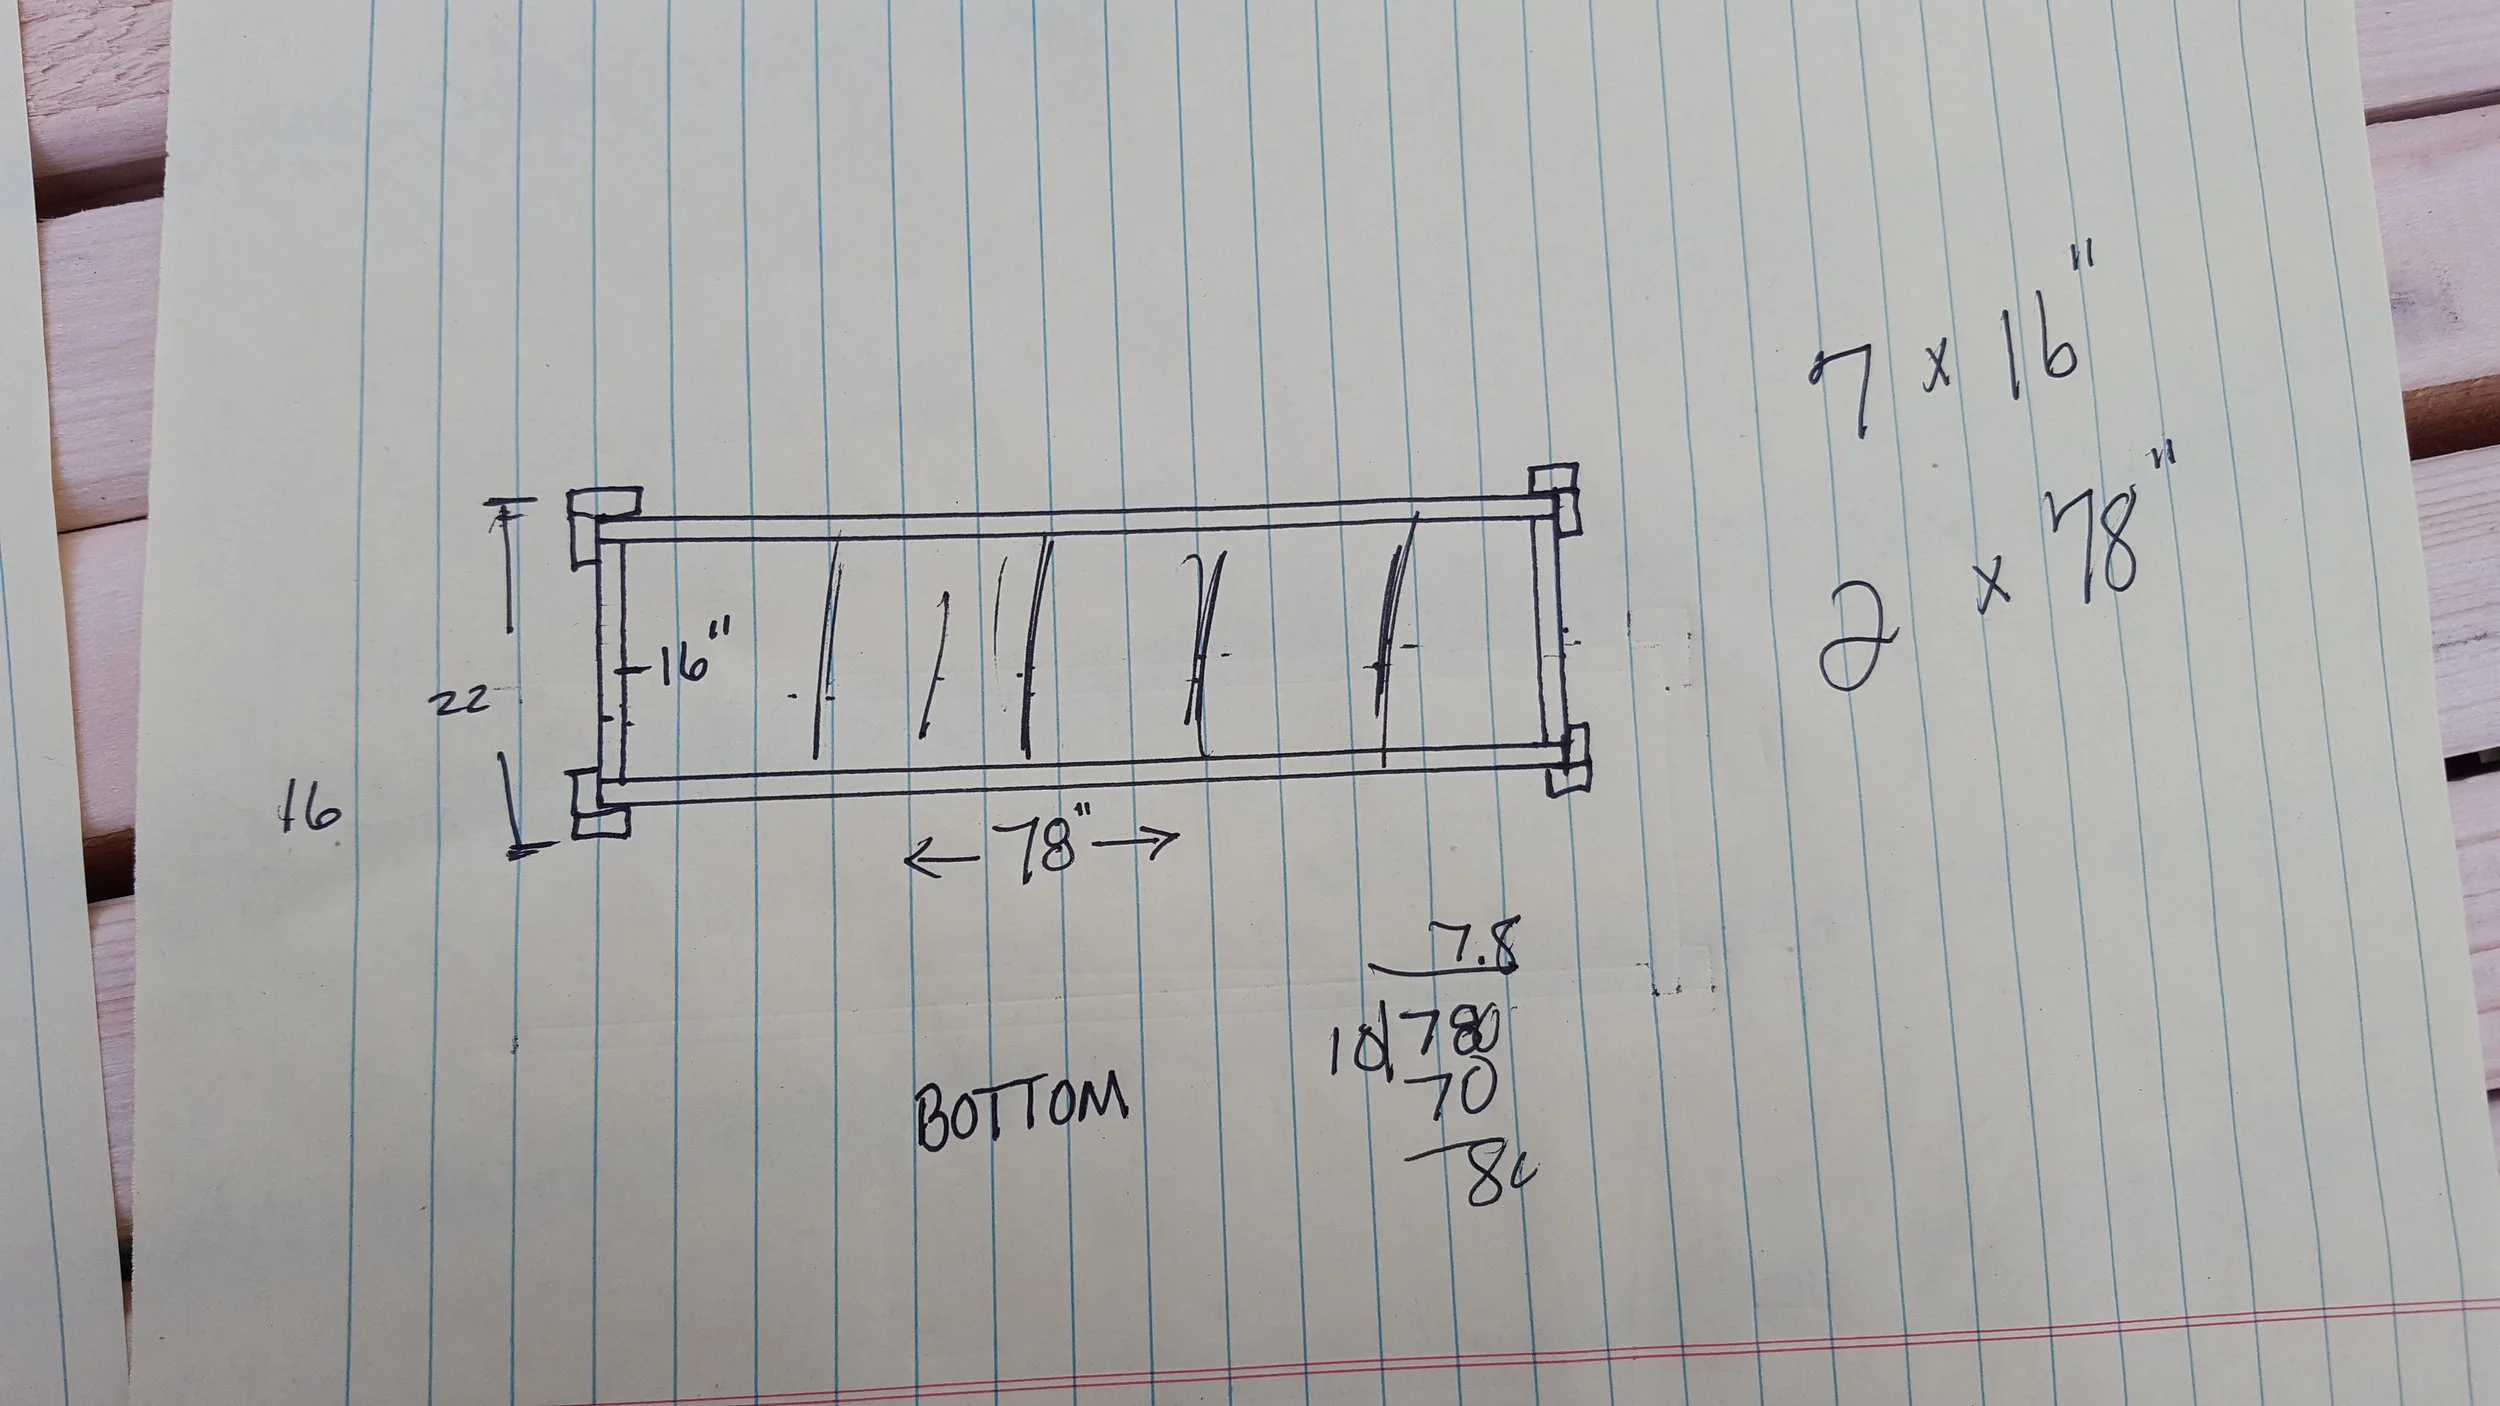 7 x 16"
2 x 78"
16"
22
16
← 78" →
7.8
10 780
70
80
BOTTOM